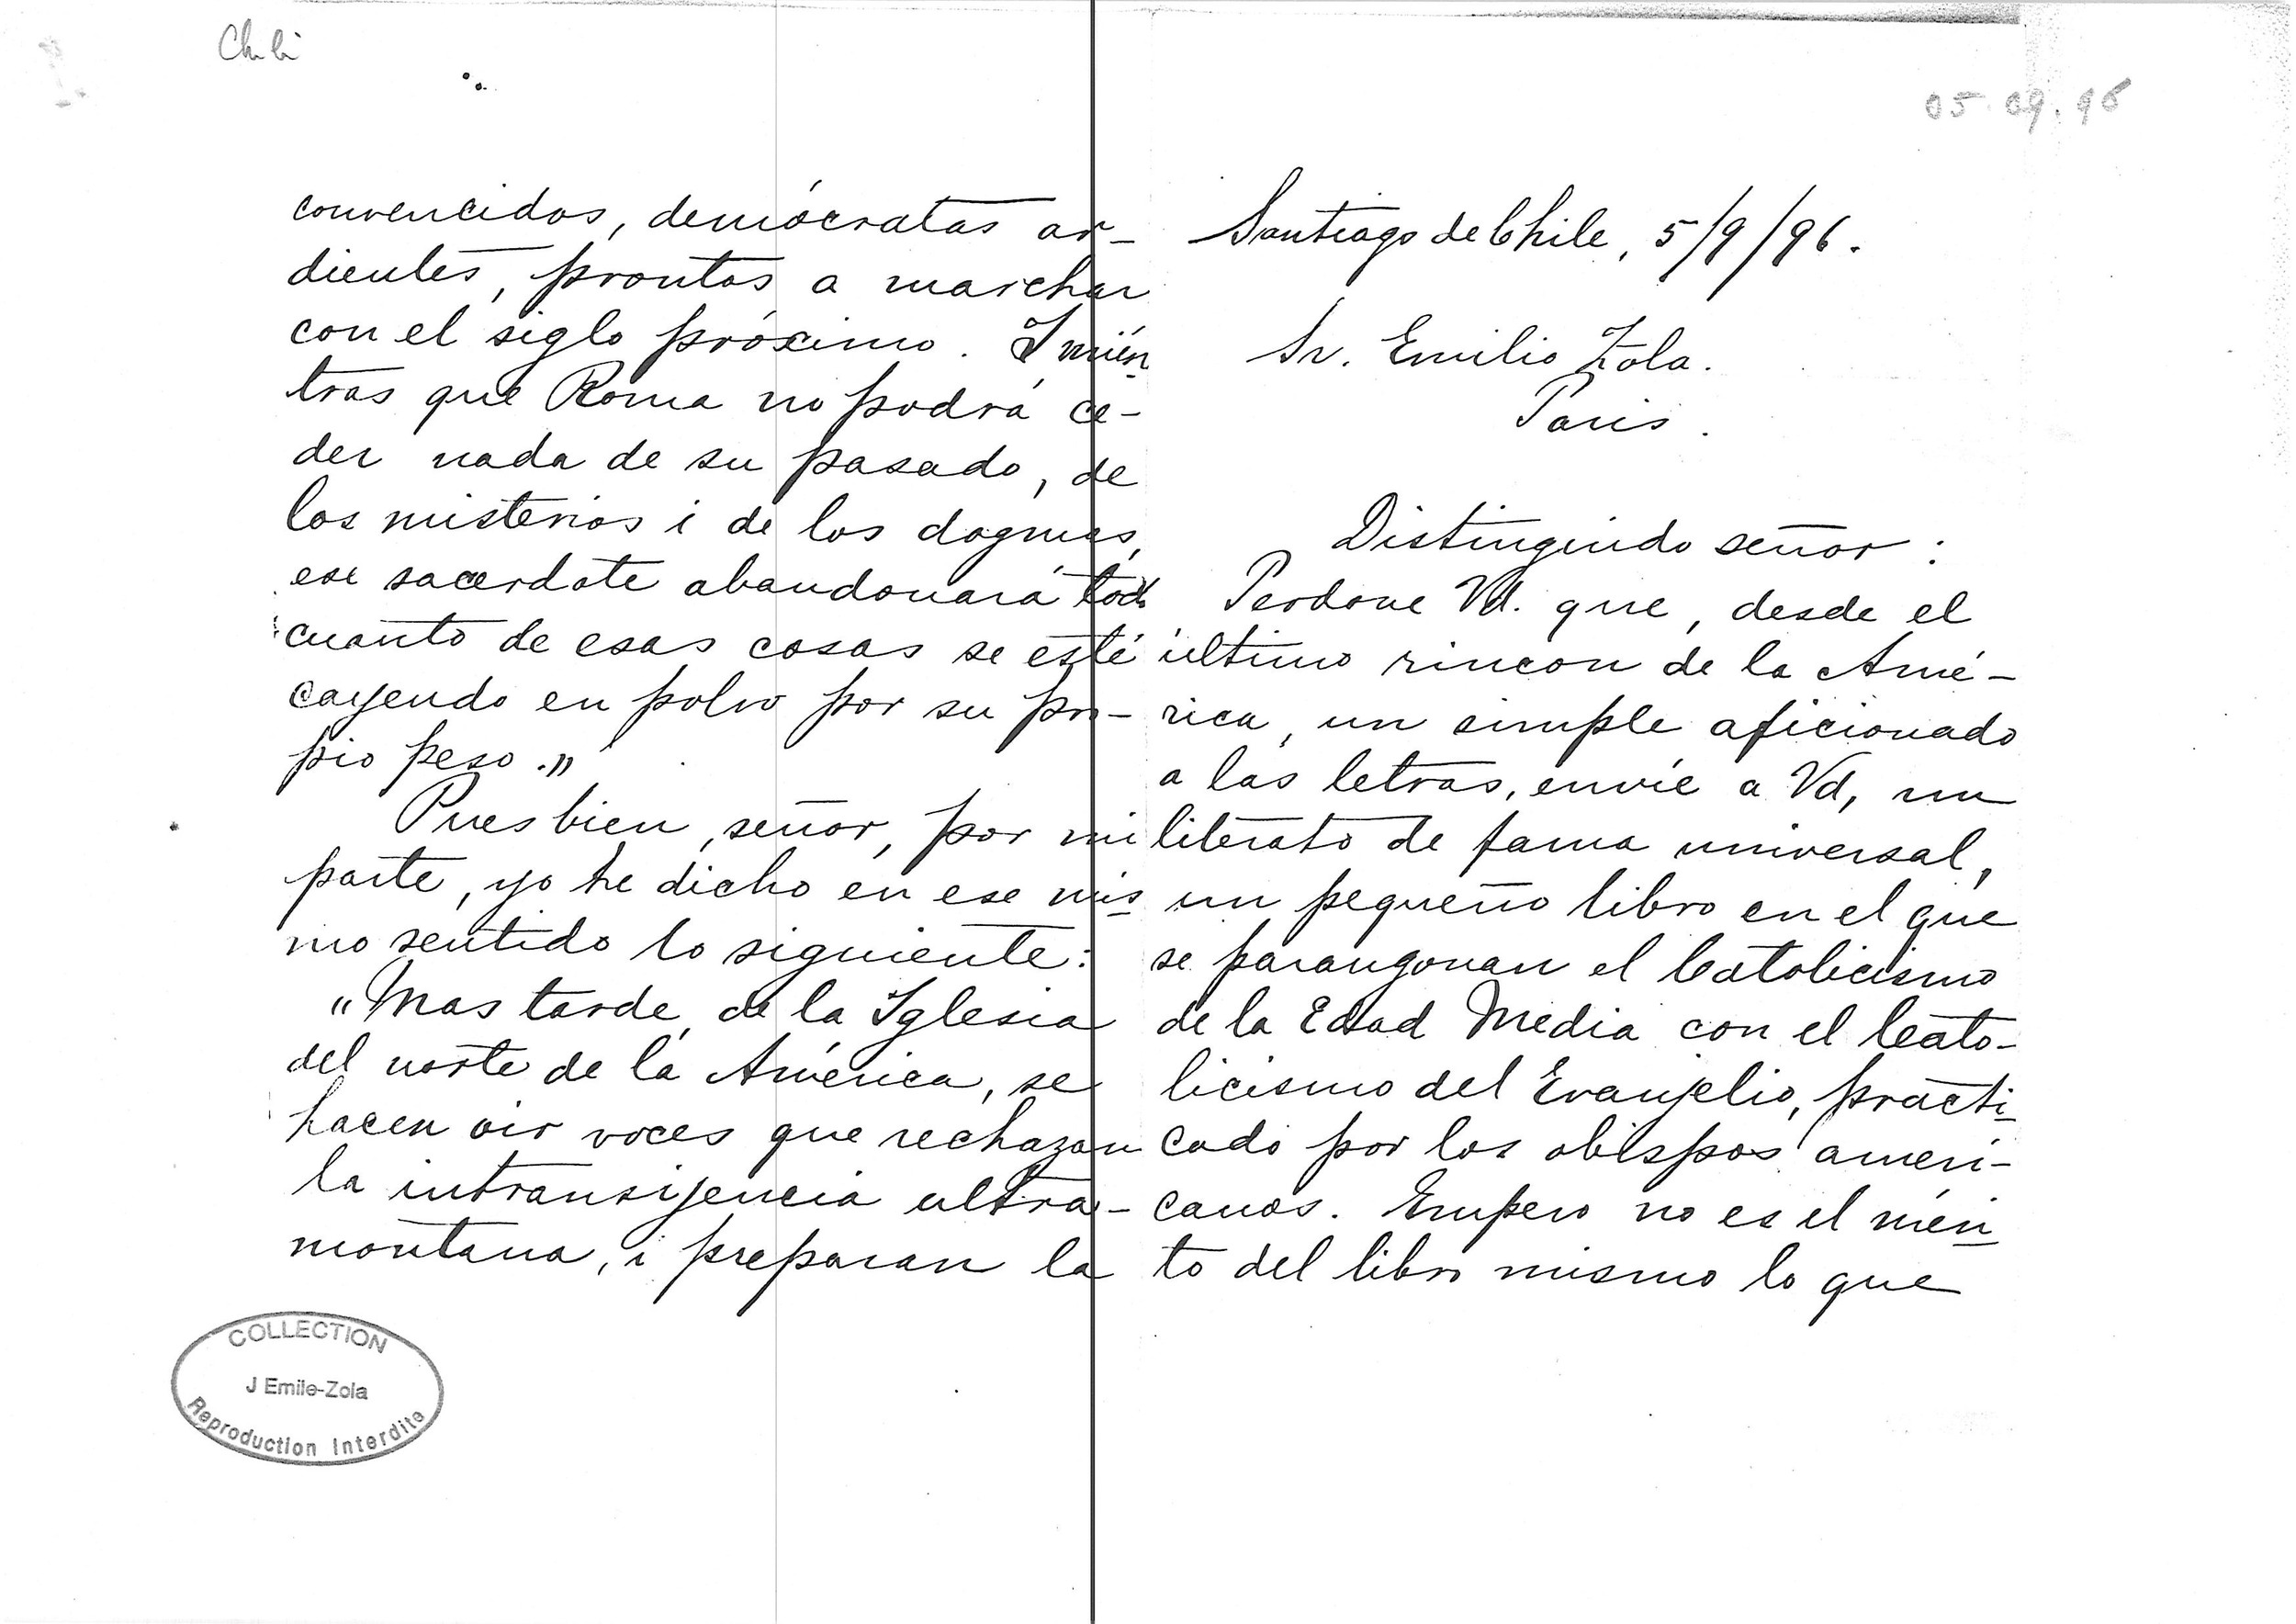 Chili
05.09.96
convencidos, demócratas ar-
dientes, prontos a marchar
con el siglo próximo. I mién
tras que Roma no podrá ce-
der nada de su pasado, de
los misterios i de los dogmas,
ese sacerdote abandonará todo
cuanto de esas cosas se esté
cayendo en polvo por su pro-
pio peso."
Pues bien, señor, por mi
parte, yo he dicho en ese mis
mo sentido lo siguiente:
"Mas tarde, de la Iglesia
del norte de la América, se
hacen oir voces que rechazan
la intransijencia ultra-
montana, i preparan la
COLLECTION
J Emile-Zola
Reproduction Interdite
Santiago de Chile, 5/9/96.
Sr. Emilio Zola.
Paris.
Distinguido señor:
Perdone Vd. que, desde el
último rincon de la Amé-
rica, un simple aficionado
a las letras, envíe a Vd, un
literato de fama universal,
un pequeño libro en el que
se parangonan el Catolicismo
de la Edad Media con el Cato-
licismo del Evanjelio, practi
cado por los obispos ameri-
canos. Empero no es el méri
to del libro mismo lo que